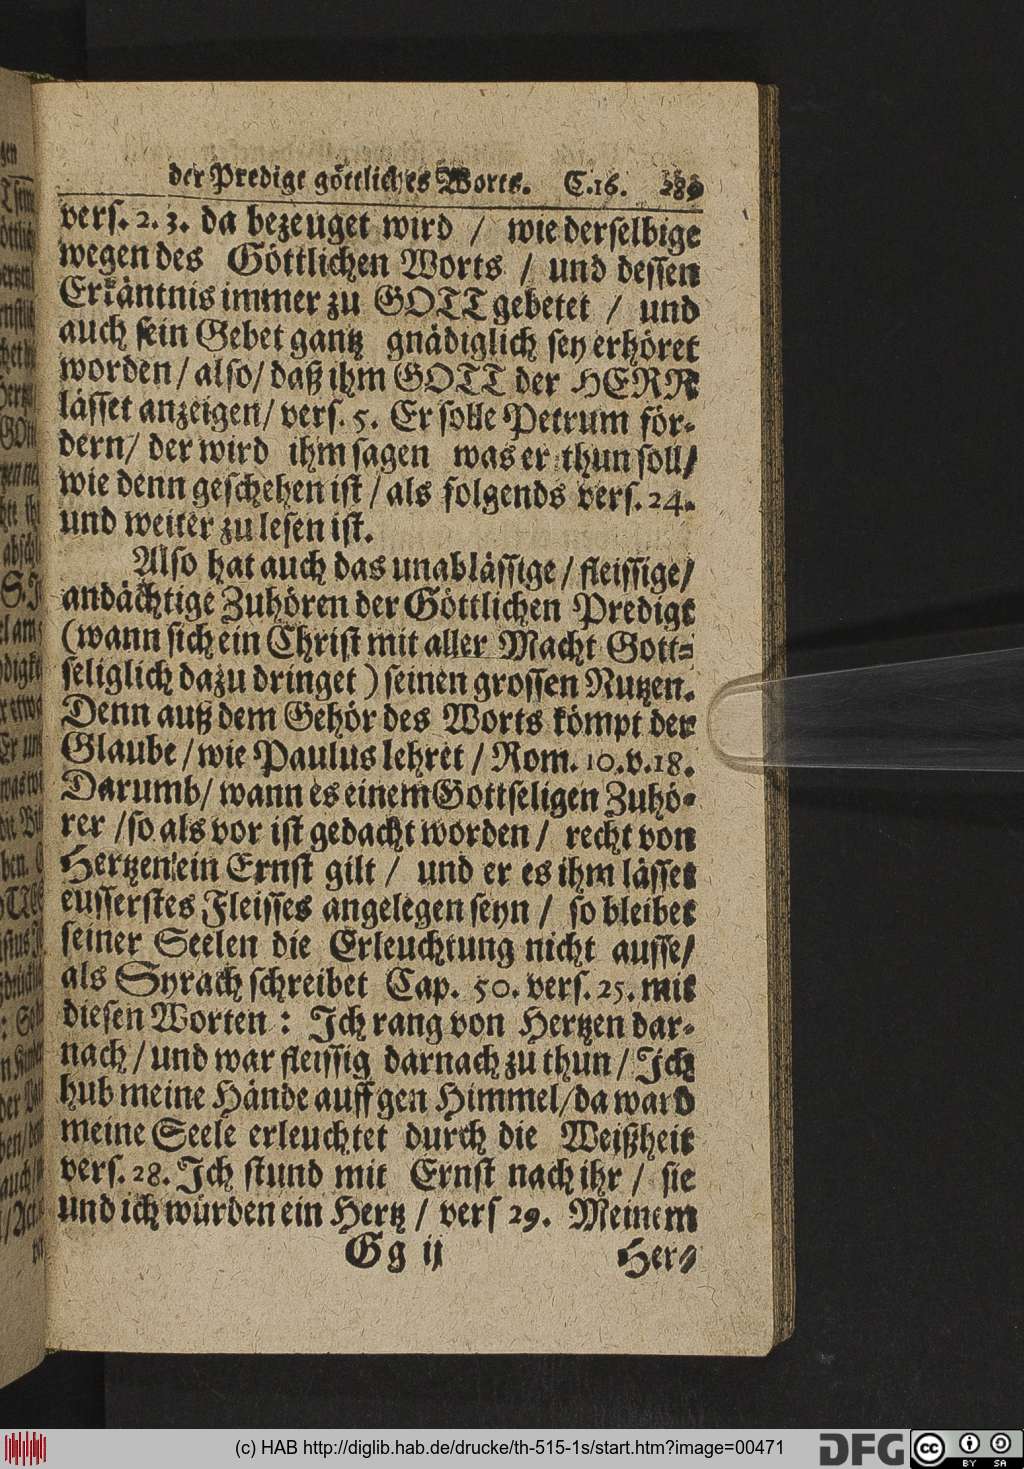 der Predigt göttliches Worts. C.16. 289
vers. 2. 3. da bezeuget wird / wie derselbige
wegen des Göttlichen Worts / und dessen
Erkäntnis immer zu GOTT gebetet / und
auch sein Gebet gantz gnädiglich sey erhöret
worden / also / daß ihm GOTT der HERR
lässet anzeigen / vers. 5. Er solle Petrum för-
dern / der wird ihm sagen was er thun soll /
wie denn geschehen ist / als folgends vers. 24.
und weiter zu lesen ist.
Also hat auch das unablässige / fleissige /
andächtige Zuhören der Göttlichen Predigt
(wann sich ein Christ mit aller Macht Gott-
seliglich dazu dringet) seinen grossen Nutzen.
Denn autz dem Gehör des Worts kömpt der
Glaube / wie Paulus lehret / Rom. 10. v. 18.
Darumb / wann es einem Gottseligen Zuhö-
rer / so als vor ist gedacht worden / recht von
Hertzen ein Ernst gilt / und er es ihm lässet
eusserstes Fleisses angelegen seyn / so bleibet
seiner Seelen die Erleuchtung nicht ausse /
als Syrach schreibet Cap. 50. vers. 25. mit
diesen Worten : Jch rang von Hertzen dar-
nach / und war fleissig darnach zu thun / Jch
hub meine Hände auff gen Himmel / da ward
meine Seele erleuchtet durch die Weißheit
vers. 28. Jch stund mit Ernst nach ihr / sie
und ich würden ein Hertz / vers 29. Meinem
Gg ij Her-
(c) HAB http://diglib.hab.de/drucke/th-515-1s/start.htm?image=00471
DFG
cc BY SA